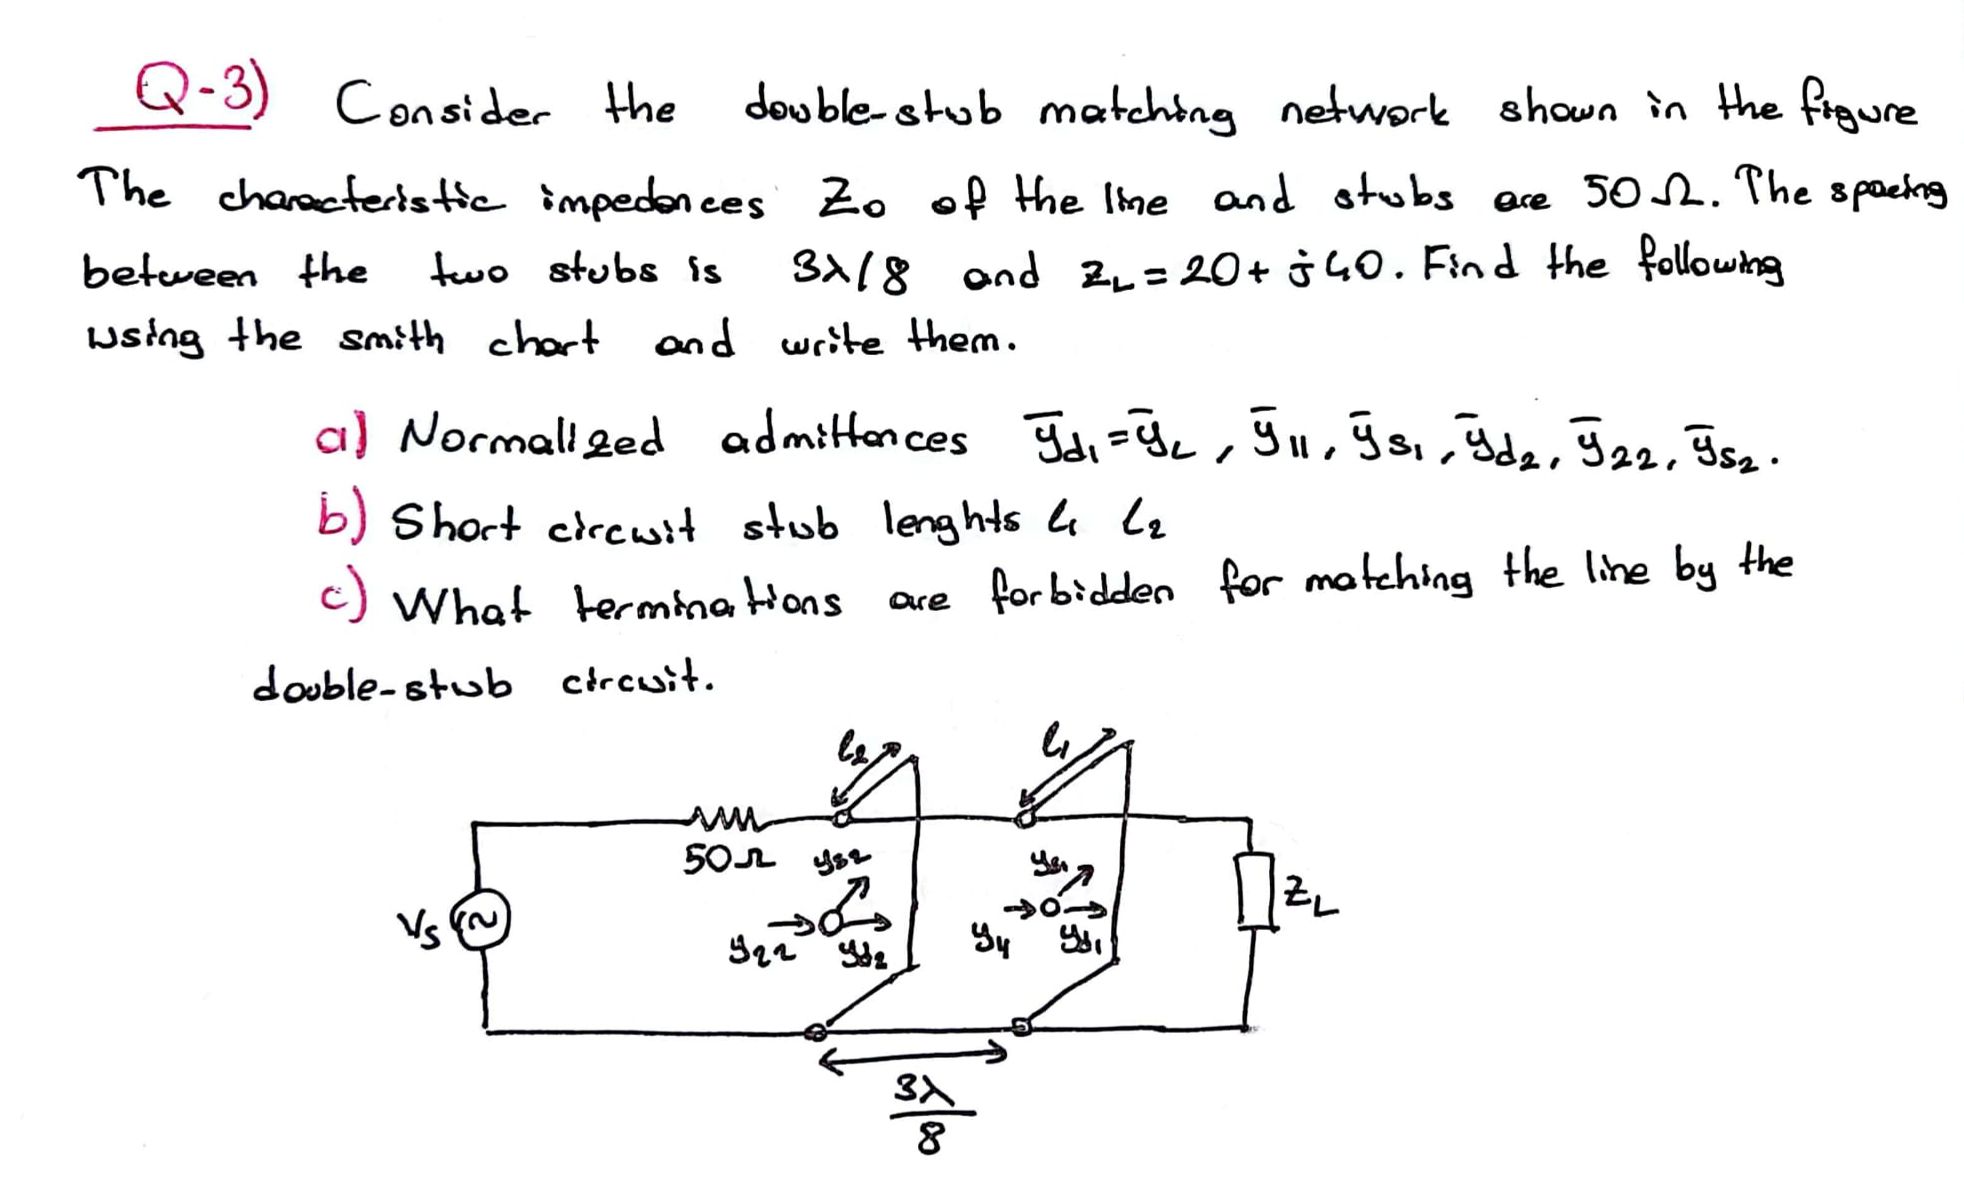 Q-3) Consider the double-stub matching network shown in the figure
The characteristic impedances Z₀ of the line and stubs are 50Ω. The spacing
between the two stubs is 3λ/8 and Z_L = 20 + j40. Find the following
using the smith chart and write them.
a) Normalized admittances ȳd₁ = ȳ_L, ȳ₁₁, ȳs₁, ȳd₂, ȳ₂₂, ȳs₂.
b) Short circuit stub lenghts l₁ l₂
c) What terminations are forbidden for matching the line by the
double-stub circuit.
l₂ l₁
50Ω ys₂ ys₁
Vs Z_L
y₂₂ yd₂ y₁₁ yd₁
3λ
8